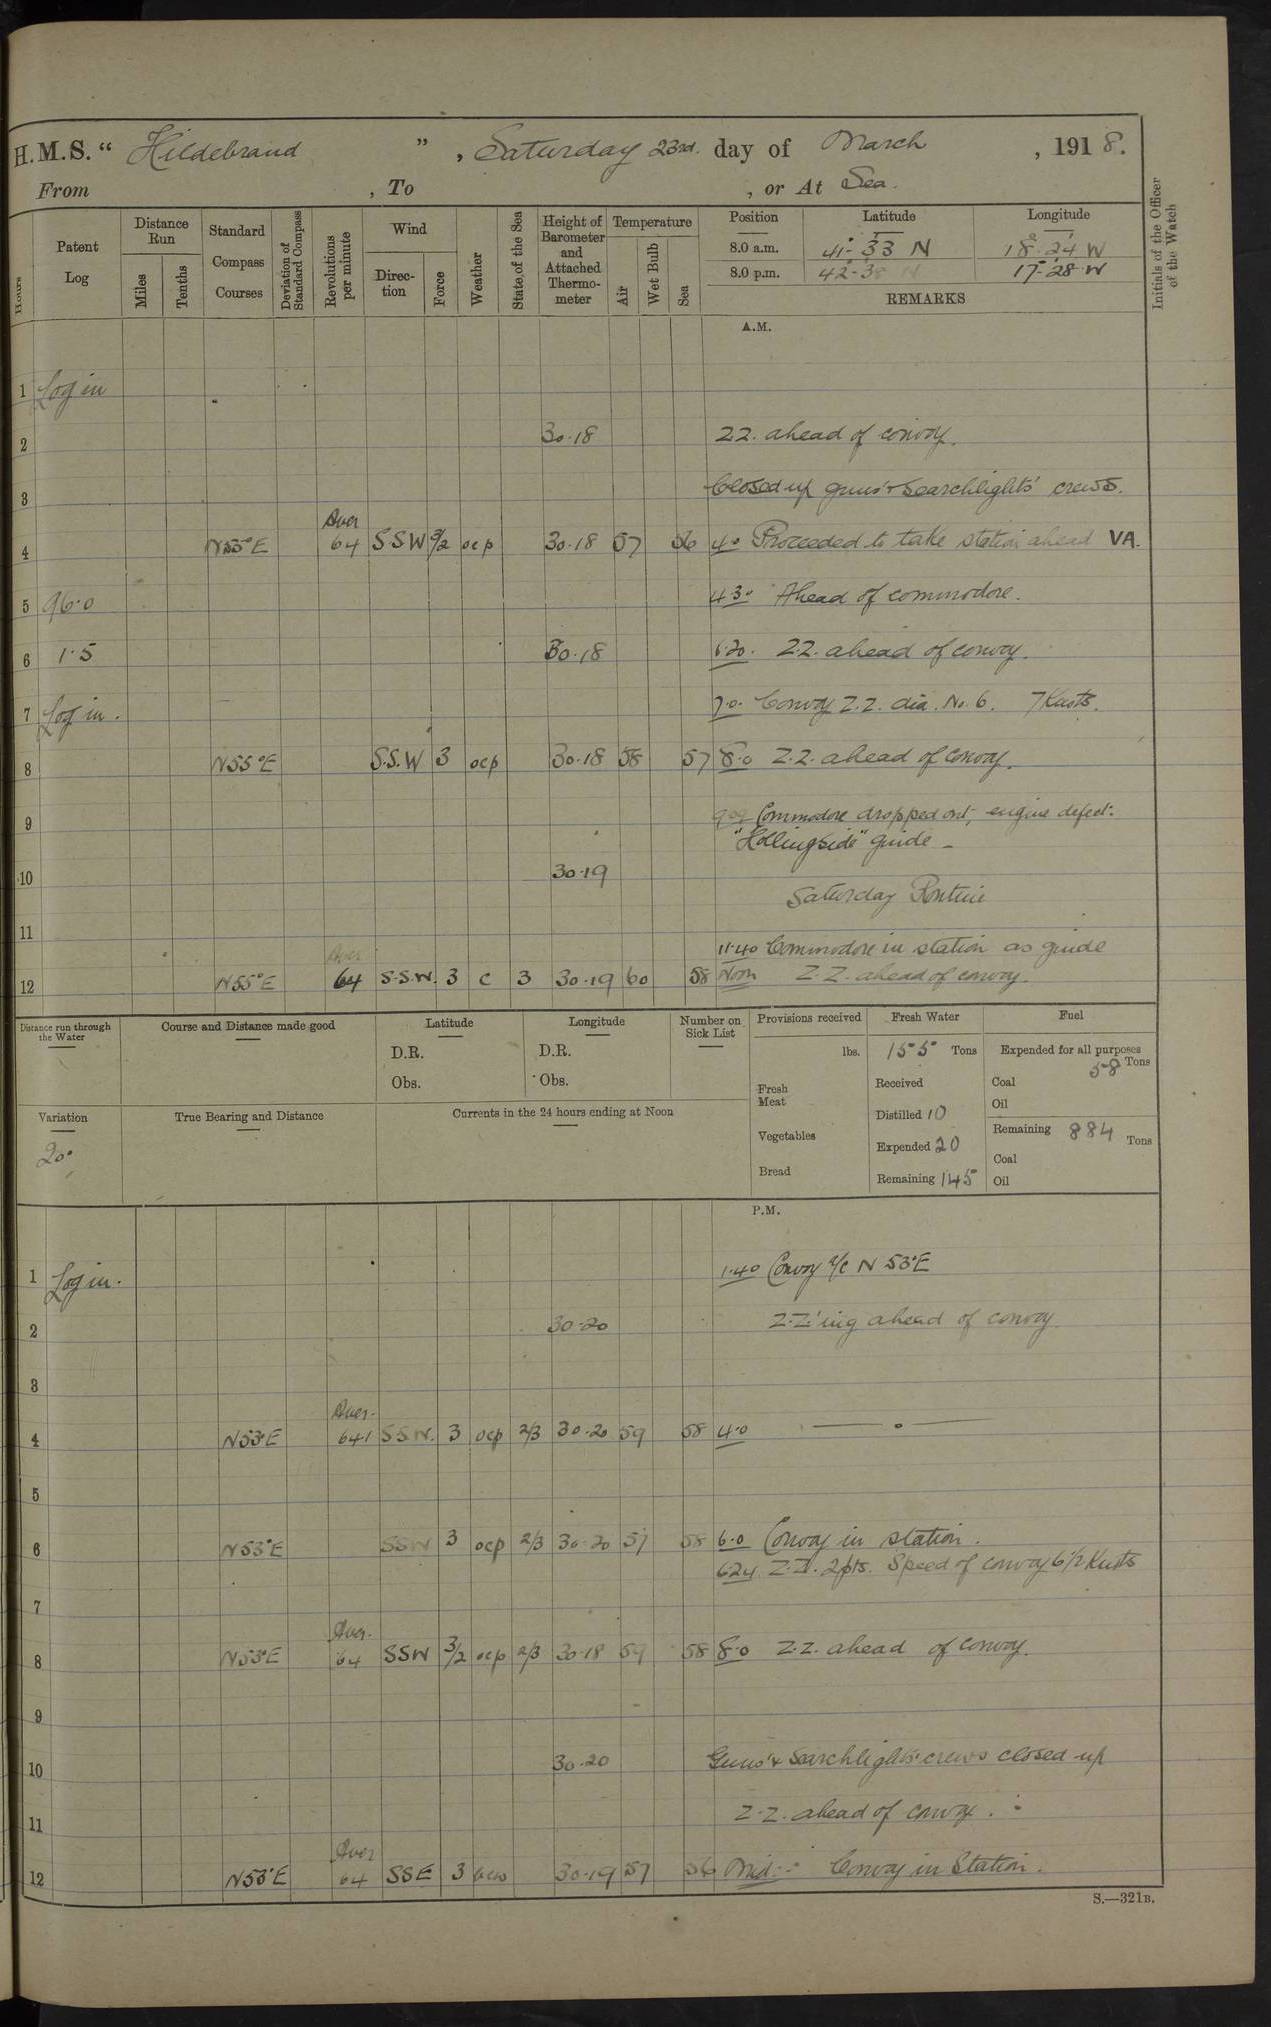 H.M.S. “ Hildebrand ” , Saturday 23rd. day of March , 1918.
From , To , or At Sea.
Hours
Patent Log
Distance Run
Miles
Tenths
Standard Compass Courses
Deviation of Standard Compass
Revolutions per minute
Wind
Direction
Force
Weather
State of the Sea
Height of Barometer and Attached Thermometer
Temperature
Air
Wet Bulb
Sea
Position Latitude Longitude
8.0 a.m. 41-33 N 18-24 W
8.0 p.m. 42-38 N 17-28 W
REMARKS
Initials of the Officer of the Watch
A.M.
1 Log in
2 30.18 Z.Z. ahead of convoy.
3 Closed up guns' & Searchlights' crews.
Aver
4 N55°E 64 S.S.W 3/2 ocp 30.18 57 56 4.0 Proceeded to take station ahead VA.
5 96.0 4.30 Ahead of commodore.
6 1.5 30.18 6.20. Z.Z. ahead of convoy.
7 Log in. 7.0. Convoy Z.Z. dia. No. 6. 7 Knots.
8 N55°E S.S.W 3 ocp 30.18 58 57 8.0 Z.Z. ahead of convoy.
9 Commodore dropped out, engine defect.
"Hollingside" guide -
10 30.19
Saturday Routine
11
11.40 Commodore in station as guide
Aver
12 N55°E 64 S.S.W. 3 c 3 30.19 60 58 Noon Z.Z. ahead of convoy.
Distance run through the Water
Course and Distance made good
Latitude
D.R.
Obs.
Longitude
D.R.
Obs.
Number on Sick List
Provisions received
lbs.
Fresh Meat
Vegetables
Bread
Fresh Water
155 Tons
Received
Distilled 10
Expended 20
Remaining 145
Fuel
Expended for all purposes
58 Tons
Coal
Oil
Remaining 884 Tons
Coal
Oil
Variation
20°
True Bearing and Distance
Currents in the 24 hours ending at Noon
P.M.
1 Log in. 1.40 Convoy a/c N 53°E
2 30.20 Z.Z.'ing ahead of convoy
3
Aver.
4 N53°E 641 SSW. 3 ocp 2/3 30.20 59 58 4.0
5
6 N53°E SSW 3 ocp 2/3 30.20 57 58 6.0 Convoy in station.
6.24 Z.Z. 2pts. Speed of convoy 6 1/2 Knots
7
Aver.
8 N53°E 64 SSW 3/2 ocp 2/3 30.18 59 58 8.0 Z.Z. ahead of convoy.
9
10 30.20 Guns' & Searchlights' crews closed up
11 Z.Z. ahead of convoy.
Aver
12 N53°E 64 SSE 3 30.19 57 56 Mid:- Convoy in Station.
S.—321B.